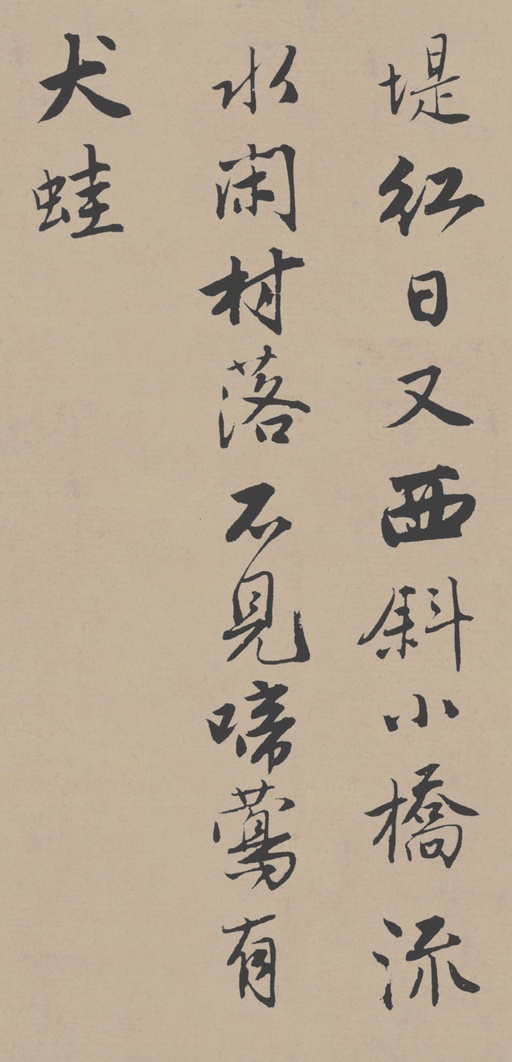 堤紅日又西斜小橋流
水閑村落不見啼鶯有
犬蛙